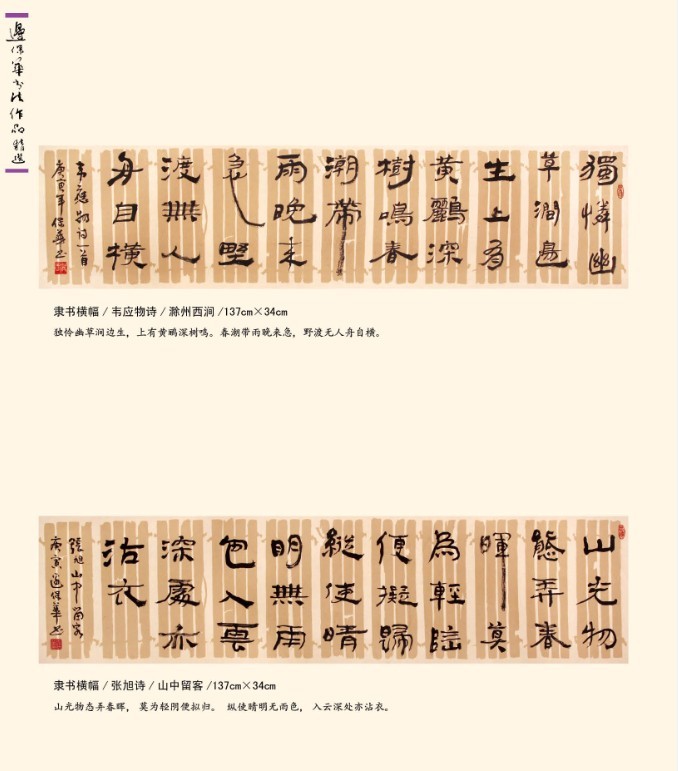 邊保華书法作品精選
獨憐幽
草澗邊
生上有
黃鸝深
樹鳴春
潮帶
雨晚来
急野
渡無人
舟自橫
韋應物詩一首
庚寅年保華书
隶书横幅 / 韦应物诗 / 滁州西涧 /137cm×34cm
独怜幽草涧边生，上有黄鹂深树鸣。春潮带雨晚来急，野渡无人舟自横。
山光物
態弄春
暉莫
為輕陰
便擬歸
縱使晴
明無雨
色入雲
深處亦
沾衣
張旭山中留客
庚寅邊保華书
隶书横幅 / 张旭诗 / 山中留客 /137cm×34cm
山光物态弄春晖， 莫为轻阴便拟归。 纵使晴明无雨色， 入云深处亦沾衣。